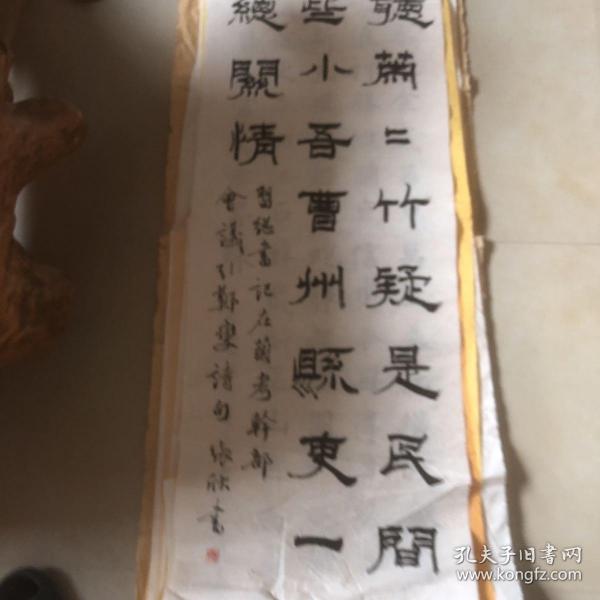 聽蕭二竹疑是民間
些小吾曹州縣吏一
總關情
習總書記在蘭考幹部
會議引鄭燮詩句 張欣書
孔夫子旧書网
www.kongfz.com